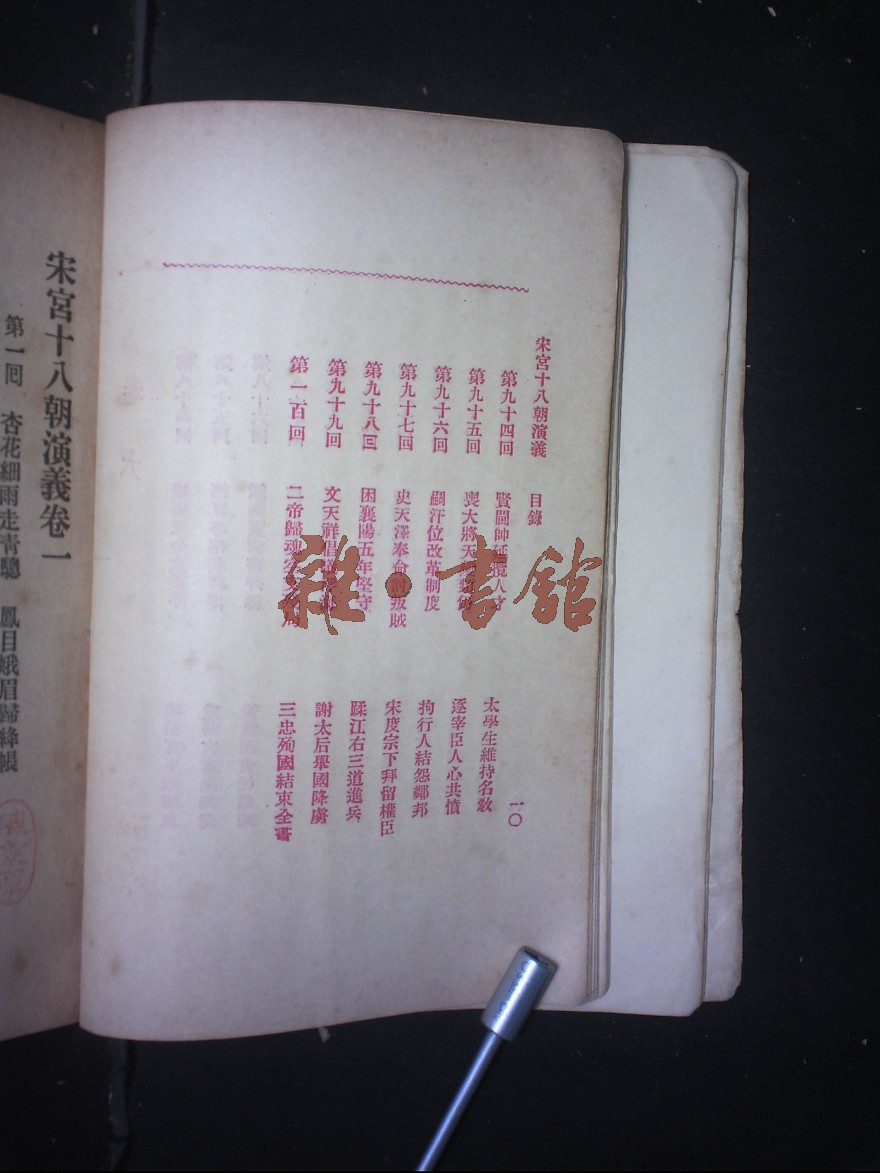 宋宮十八朝演義 目錄 一〇
第九十四回 賢閫帥延攬人才 太學生維持名教
第九十五回 喪大將天 逐宰臣人心共憤
第九十六回 嗣汗位改革制度 拘行人結怨鄰邦
第九十七回 史天澤奉命討叛賊 宋度宗下拜留權臣
第九十八回 困襄陽五年堅守 蹂江右三道進兵
第九十九回 文天祥倡 謝太后舉國降虜
第一百回 二帝歸魂 三忠殉國結束全書
宋宮十八朝演義卷一
第一回 杏花細雨走青驄 鳳目蛾眉歸絳帳
雜·書館